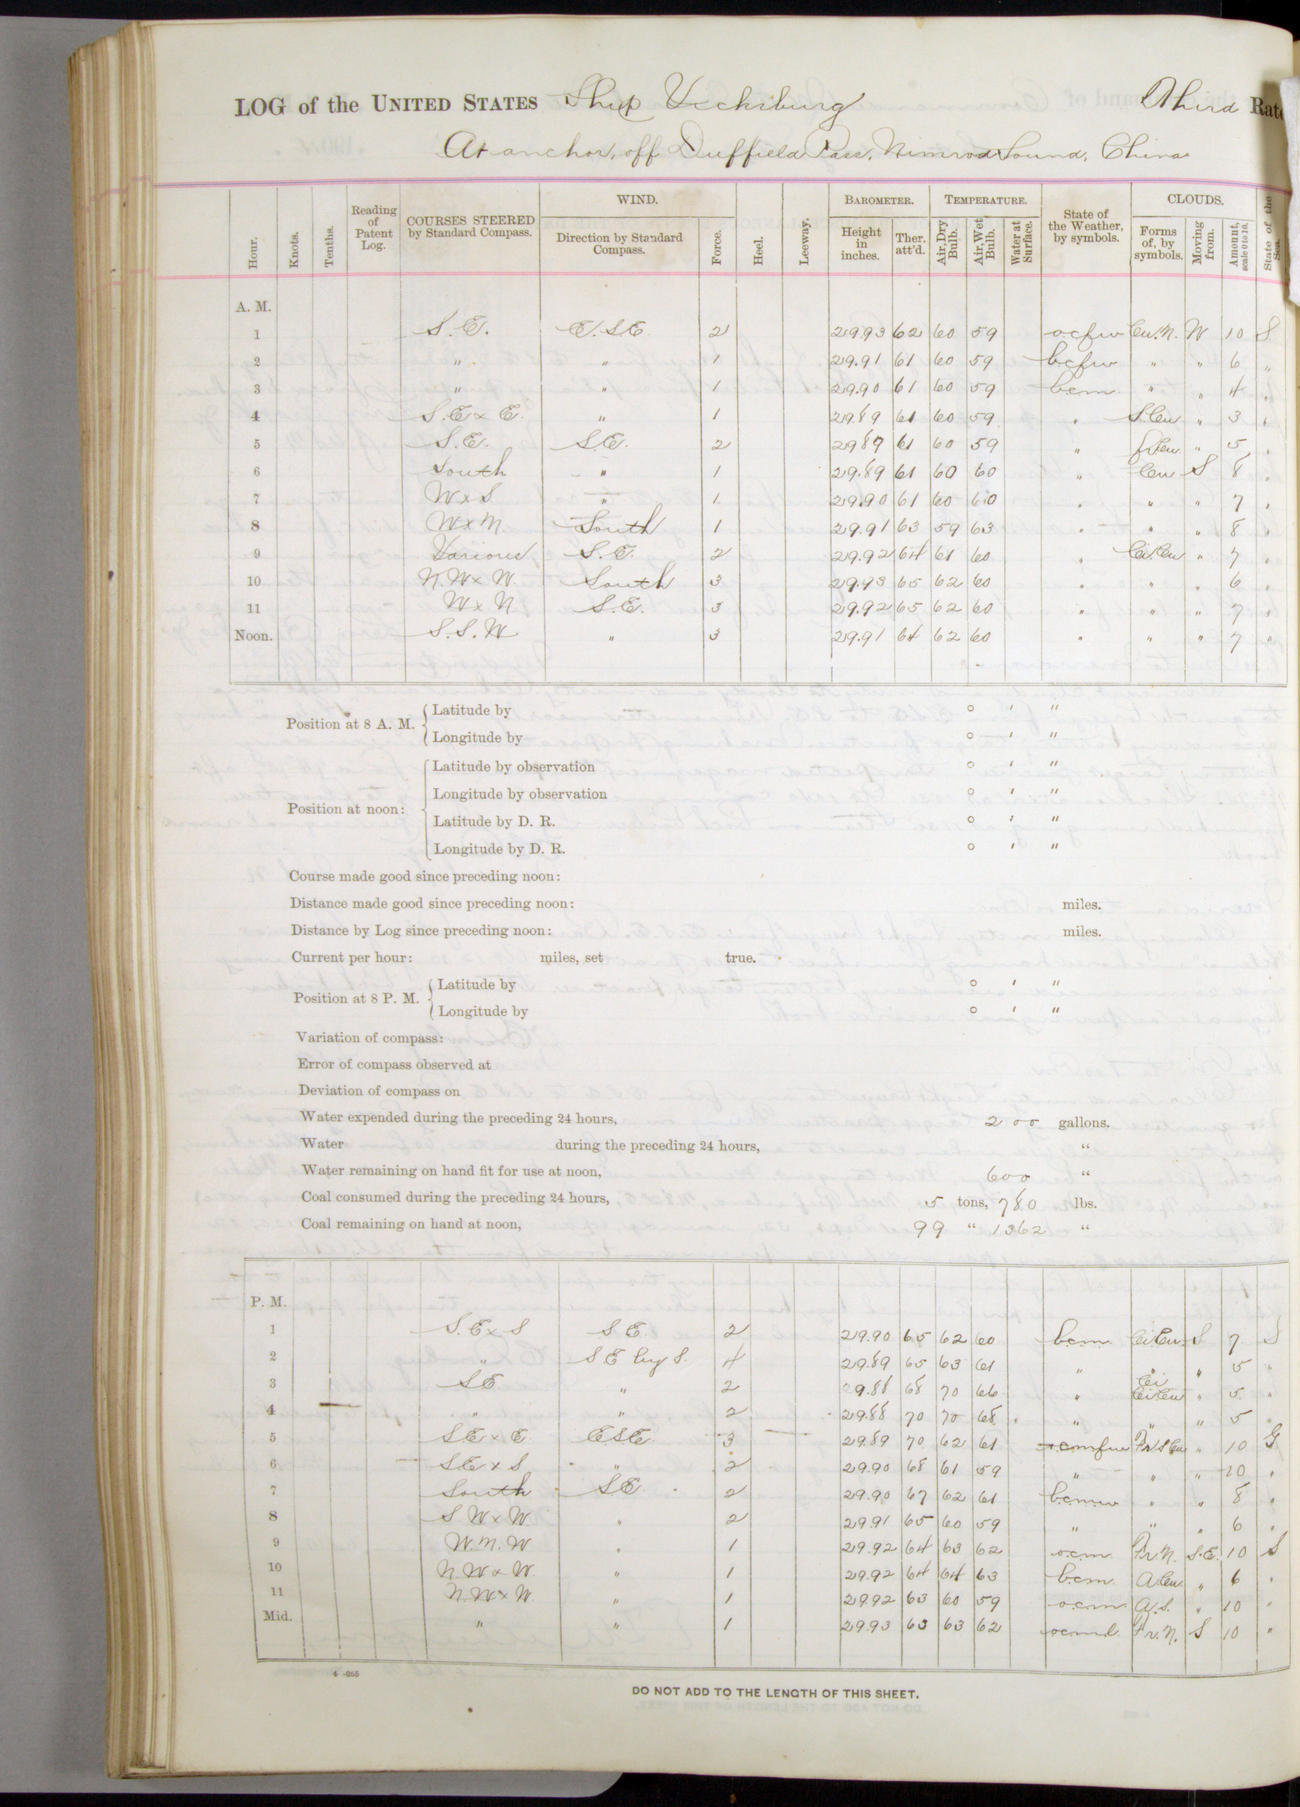 LOG of the UNITED STATES Ship Vicksburg Third Rate
At anchor, off Duffield Pass, Nimrod Sound, China
Hour. Knots. Tenths. Reading of Patent Log. COURSES STEERED by Standard Compass. WIND. Direction by Standard Compass. Force. Heel. Leeway. BAROMETER. Height in inches. Ther. att'd. TEMPERATURE. Air, Dry Bulb. Air, Wet Bulb. Water at Surface. State of the Weather, by symbols. CLOUDS. Forms of, by symbols. Moving from. Amount, scale 0 to 10. State of the Sea.
A. M.
1 S.E. E.S.E. 2 29.93 62 60 59 ocfw Cu.N. W 10 S
2 " " 1 29.91 61 60 59 bcfw " " 6 "
3 " " 1 29.90 61 60 59 bcm " " 4 "
4 S.E x E. " 1 29.89 61 60 59 " S.Cu " 3 "
5 S.E. S.E. 2 29.89 61 60 59 " " 5 "
6 South " 1 29.89 61 60 60 " Cu S 8 "
7 W x S " 1 29.90 61 60 60 " " " 7 "
8 W x N South 1 29.91 63 59 63 " " " 8 "
9 Various S.E. 2 29.92 64 61 60 " Ci.Cu " 7 "
10 N.W x W. South 3 29.93 65 62 60 " " " 6 "
11 W x N S.E. 3 29.92 65 62 60 " " " 7 "
Noon. S.S.W " 3 29.91 64 62 60 " " " 7 "
Position at 8 A. M. Latitude by ° ' "
Longitude by ° ' "
Position at noon: Latitude by observation ° ' "
Longitude by observation ° ' "
Latitude by D. R. ° ' "
Longitude by D. R. ° ' "
Course made good since preceding noon:
Distance made good since preceding noon: miles.
Distance by Log since preceding noon: miles.
Current per hour: miles, set true.
Position at 8 P. M. Latitude by ° ' "
Longitude by ° ' "
Variation of compass:
Error of compass observed at
Deviation of compass on
Water expended during the preceding 24 hours, 200 gallons.
Water during the preceding 24 hours, "
Water remaining on hand fit for use at noon, 600 "
Coal consumed during the preceding 24 hours, 5 tons, 780 lbs.
Coal remaining on hand at noon, 99 " 1362 "
P. M.
1 S.E x S S E. 2 29.90 65 62 60 bcm Ci.Cu. S 7 S
2 " S E by S. 4 29.89 65 63 61 " " " 5 "
3 SE " 2 29.88 68 70 66 " Ci Ci.Cu " 5 "
4 " " 2 29.88 70 70 68 " " " 5 "
5 SE x E ESE 3 29.89 70 62 61 ocmfw " 10 G
6 SE x S " 2 29.90 68 61 59 " " " 10 "
7 South SE 2 29.90 67 62 61 bcmw " " 8 "
8 S W x W. " 2 29.91 65 60 59 " " " 6 "
9 W.N.W " 1 29.92 64 63 62 ocm Fr.N. S.E. 10 S
10 N.W x W. " 1 29.92 64 64 63 bcm A.Cu " 6 "
11 N.W x W. " 1 29.92 63 60 59 ocm A.S. " 10 "
Mid. " " 1 29.93 63 63 62 ocmd Fr.N. S 10 "
4—255
DO NOT ADD TO THE LENGTH OF THIS SHEET.